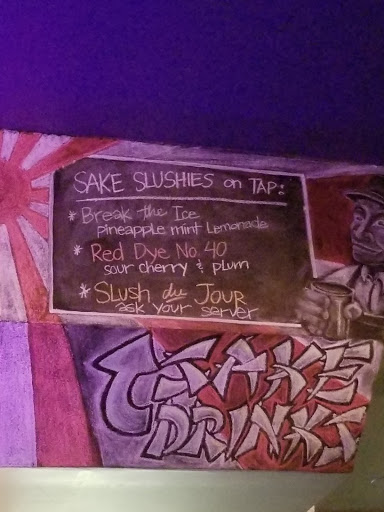 SAKE SLUSHIES on TAP:
* Break the Ice
pineapple mint Lemonade
* Red Dye No. 40
sour cherry & plum
* Slush du Jour
ask your server
SAKE
DRINKS